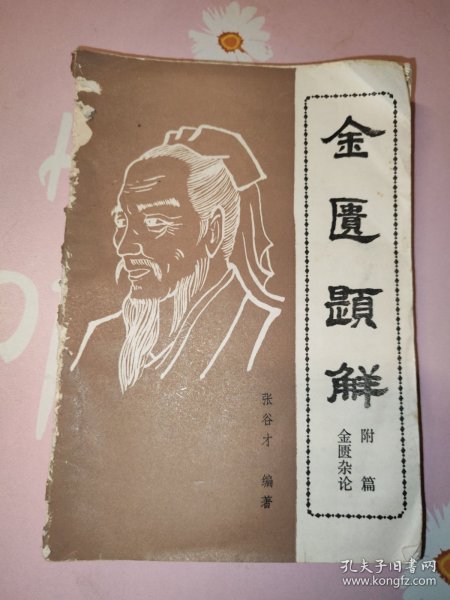 金匱題解
附篇
金匮杂论
张谷才 编著
孔夫子旧书网
www.kongfz.com